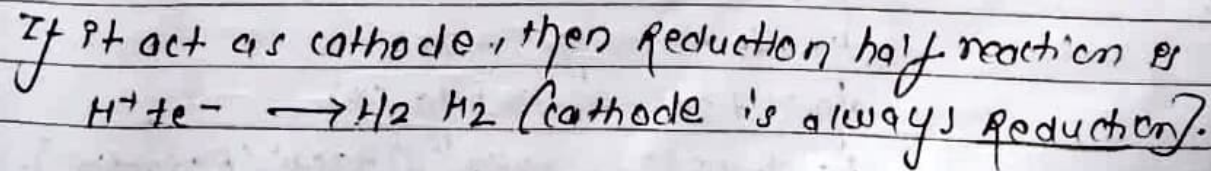 If it act as cathode, then Reduction half reaction is
H⁺ + e⁻ → 1/2 H2 (cathode is always Reduction).